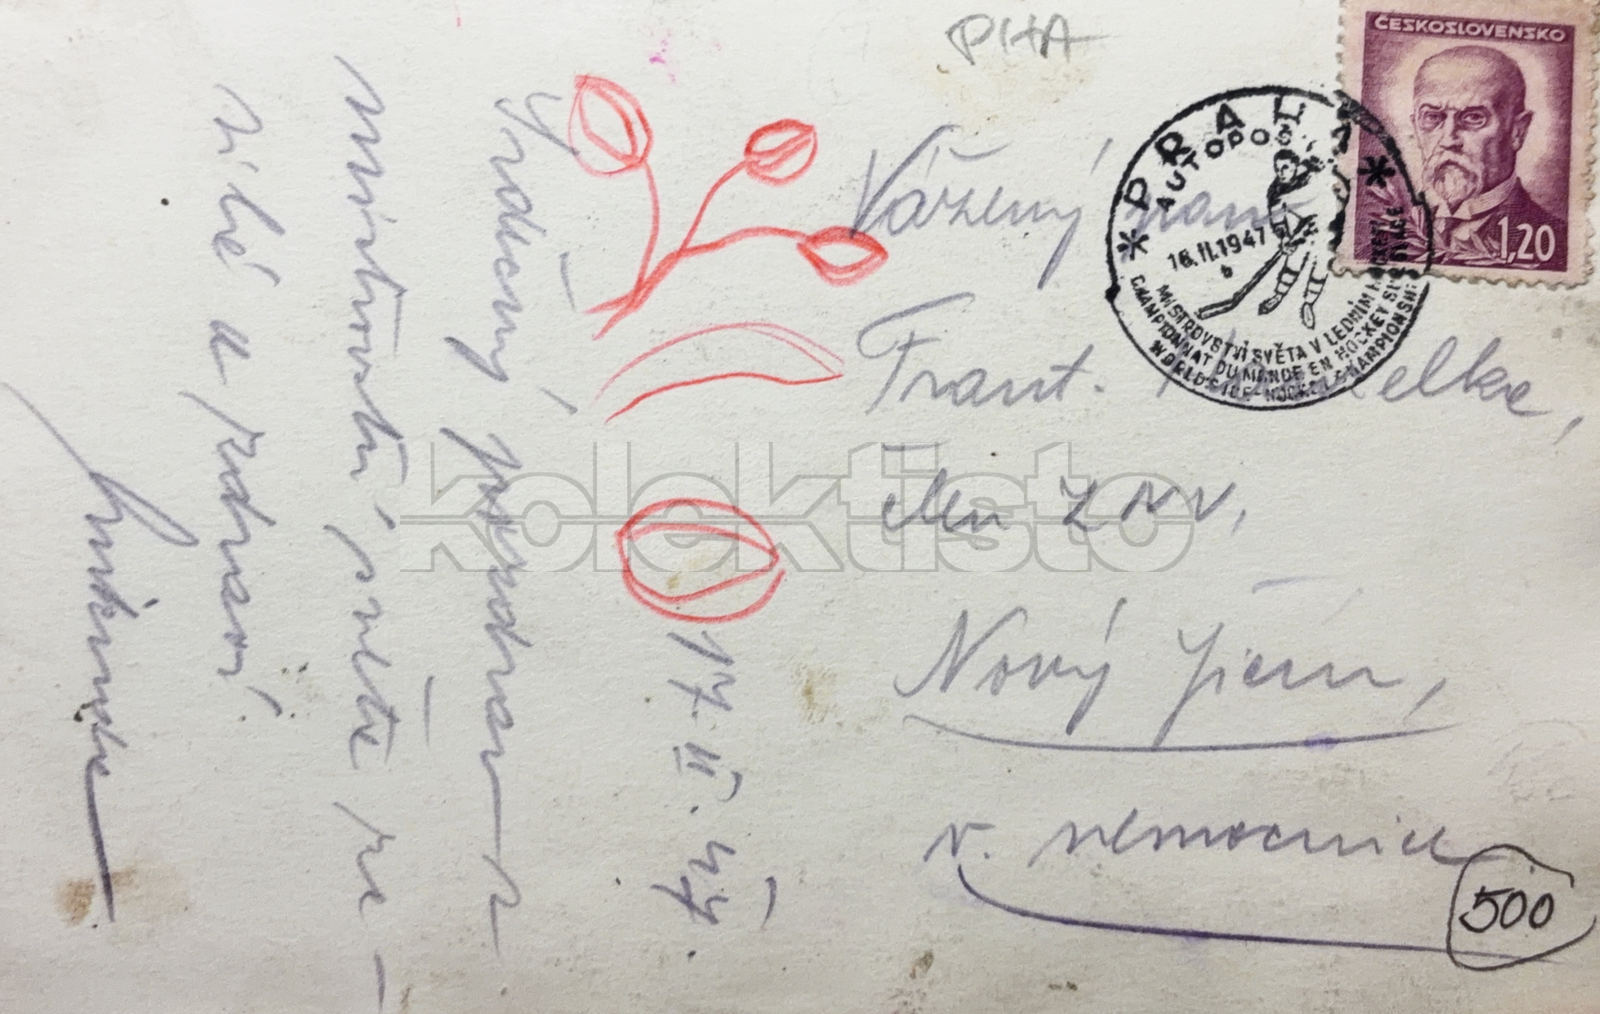 PHA
ČESKOSLOVENSKO
1,20
PRAHA
AUTOPOŠTA
16.II.1947
b
MISTROVSTVÍ SVĚTA V LEDNÍM HOCKEYI
CHAMPIONNAT DU MONDE EN HOCKEY SUR GLACE
WORLD'S ICE-HOCKEY CHAMPIONSHIP
Vážený pane
Frant.
člen ZNV,
Nový Jičín,
v. nemocnice
500
17. II. 47.
Srdečný pozdrav z
mistrovství světa
a zdraví
kolektisto